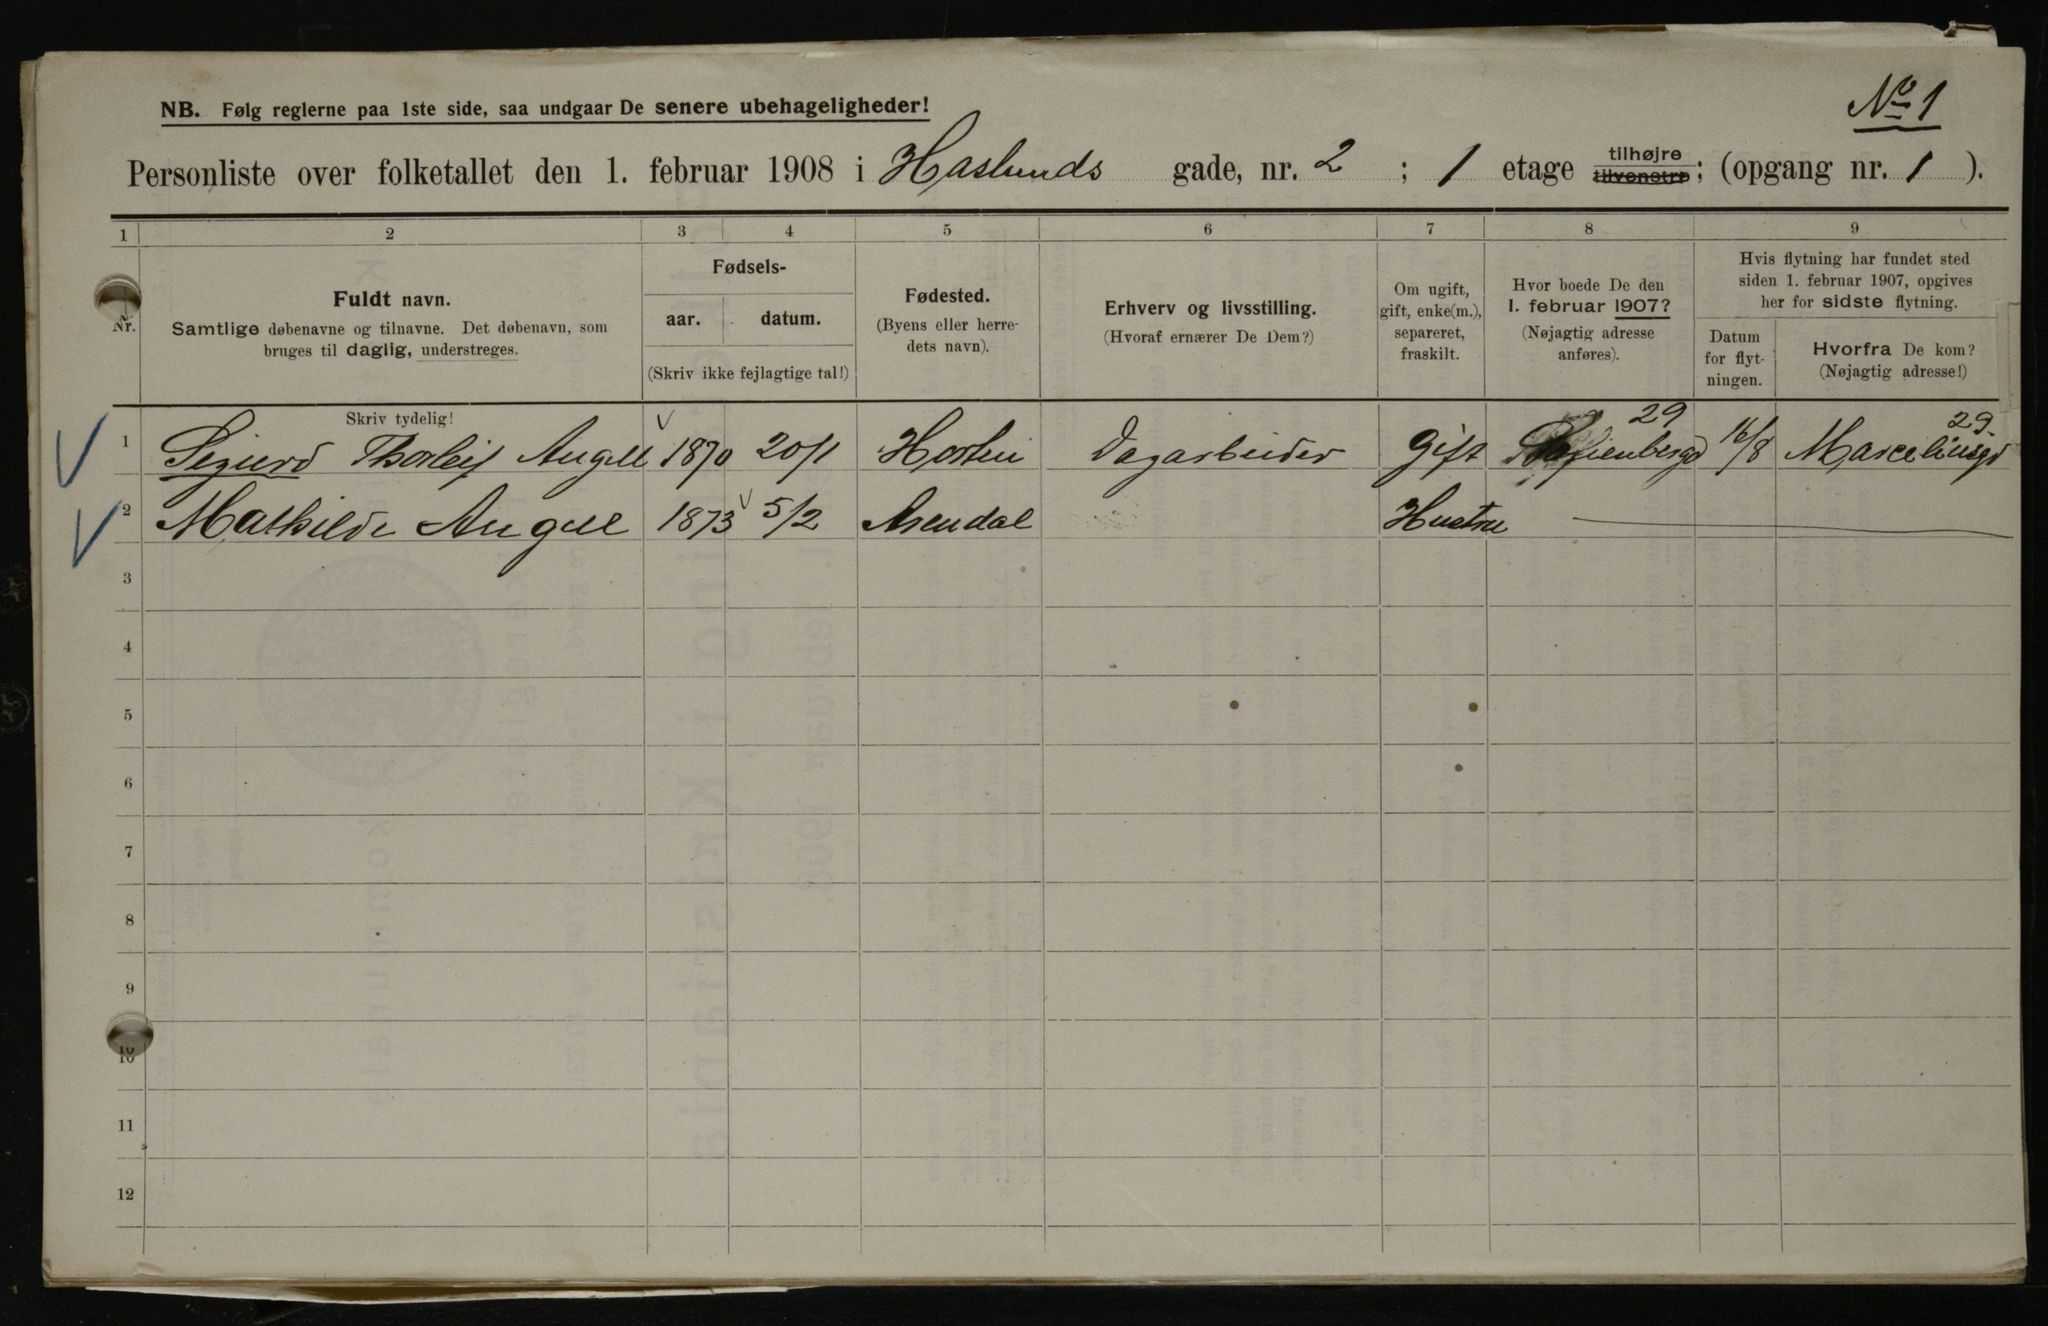 No 1
NB. Følg reglerne paa 1ste side, saa undgaar De senere ubehageligheder!
Personliste over folketallet den 1. februar 1908 i Haslunds gade, nr. 2 ; 1 etage tilhøjre tilvenstre; (opgang nr. 1 ).
1 2 3 4 5 6 7 8 9
Nr.
Fuldt navn.
Samtlige døbenavne og tilnavne. Det døbenavn, som
bruges til daglig, understreges.
Fødsels-
aar. datum.
(Skriv ikke fejlagtige tal!)
Fødested.
(Byens eller herre-
dets navn).
Erhverv og livsstilling.
(Hvoraf ernærer De Dem?)
Om ugift,
gift, enke(m.),
separeret,
fraskilt.
Hvor boede De den
1. februar 1907?
(Nøjagtig adresse
anføres).
Hvis flytning har fundet sted
siden 1. februar 1907, opgives
her for sidste flytning.
Datum
for flyt-
ningen.
Hvorfra De kom?
(Nøjagtig adresse!)
Skriv tydelig!
1 Sigurd Thorleif Angell 1870 20/1 Horten Dagarbeider Gift 29 16/8 Marceliusgd 29
2 Mathilde Angell 1873 5/2 Arendal Hustru
3
4
5
6
7
8
9
10
11
12